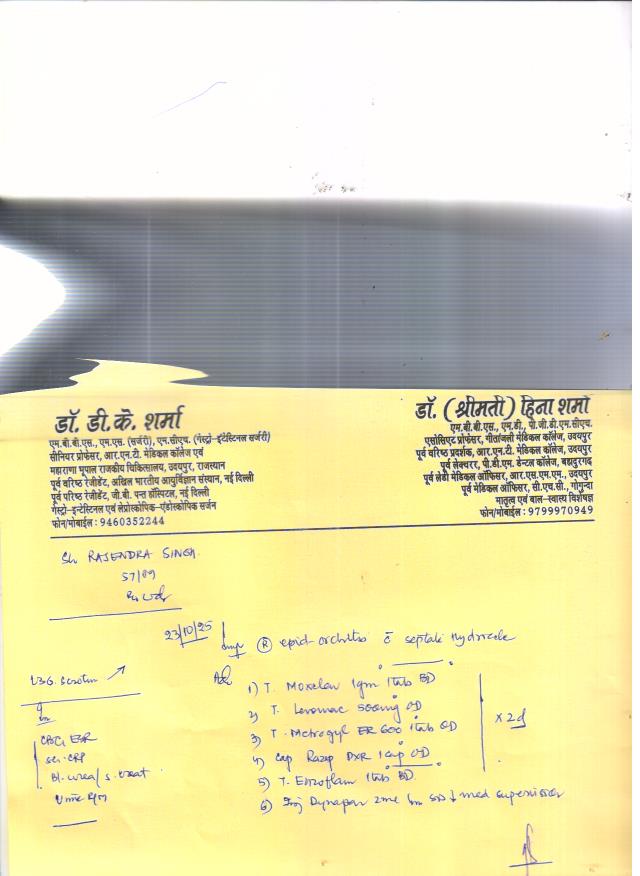 डॉ. डी.के. शर्मा
एम.बी.बी.एस., एम.एस. (सर्जरी), एम.सीएच. (गैस्ट्रो-इन्टेस्टिनल सर्जरी)
सीनियर प्रोफेसर, आर.एन.टी. मेडिकल कॉलेज एवं
महाराणा भूपाल राजकीय चिकित्सालय, उदयपुर, राजस्थान
पूर्व वरिष्ठ रेजीडेंट, अखिल भारतीय आयुर्विज्ञान संस्थान, नई दिल्ली
पूर्व वरिष्ठ रेजीडेंट, जी.बी. पन्त हॉस्पिटल, नई दिल्ली
गैस्ट्रो-इन्टेस्टिनल एवं लेप्रोस्कोपिक-एंडोस्कोपिक सर्जन
फोन/मोबाईल : 9460352244
डॉ. (श्रीमती) हिना शर्मा
एम.बी.बी.एस., एम.डी., पी.जी.डी.एम.सीएच.
एसोसिएट प्रोफेसर, गीतांजली मेडिकल कॉलेज, उदयपुर
पूर्व वरिष्ठ प्रदर्शक, आर.एन.टी. मेडिकल कॉलेज, उदयपुर
पूर्व लेक्चरर, पी.डी.एम. डेन्टल कॉलेज, बहादुरगढ़
पूर्व लेडी मेडिकल ऑफिसर, आर.एस.एम.एम., उदयपुर
पूर्व मेडिकल ऑफिसर, सी.एच.सी., गोगुन्दा
मातृत्व एवं बाल-स्वास्थ्य विशेषज्ञ
फोन/मोबाईल : 9799970949
Sh RAJENDRA SINGH
57/
23/10/25
Ⓡ epid-orchitis c̄ septate Hydrocele
USG. Scrotum
CBC, ESR
ser. CRP
Bl. urea / s. creat
Urine R/M
Adv
1) T. Moxclav 1gm 1tab BD
2) T. Levomac 500mg OD
3) T. Metrogyl ER 600 1tab OD
4) Cap Razap DXR 1cap OD
x 2d
5) T. Enzoflam 1tab BD.
6) Inj Dynapar 2ml Im SOS ↓ med supervision